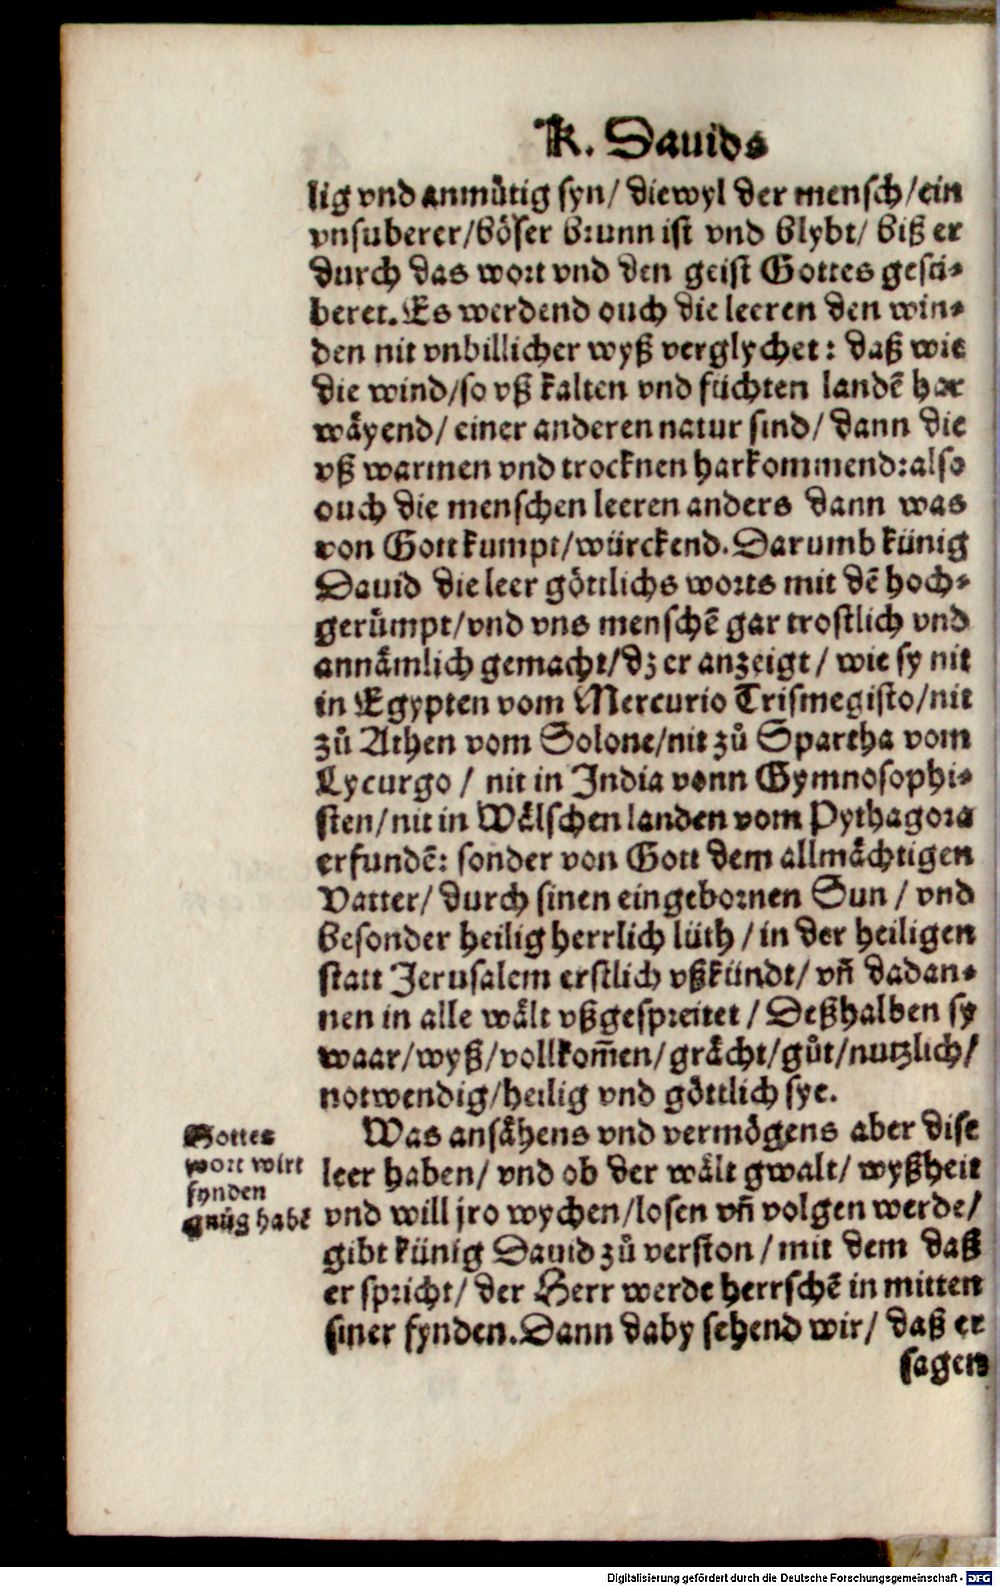 K. Dauids
lig vnd anmůtig syn/ diewyl der mensch/ein
vnsuberer/böser brunn ist vnd blybt/ biß er
durch das wort vnd den geist Gottes gesü-
beret. Es werdend ouch die leeren den win-
den nit vnbillicher wyß verglychet: daß wie
die wind/so vß kalten vnd füchten landẽ har
wäyend/ einer anderen natur sind/ dann die
vß warmen vnd trocknen harkommend: also
ouch die menschen leeren anders dann was
von Gott kumpt/würckend. Darumb künig
Dauid die leer göttlichs worts mit dẽ hoch-
gerůmpt/vnd vns menschẽ gar trostlich vnd
annämlich gemacht/dz er anzeigt/ wie sy nit
in Egypten vom Mercurio Trismegisto/nit
zů Athen vom Solone/nit zů Spartha vom
Lycurgo/ nit in India vonn Gymnosophi-
sten/nit in Wälschen landen vom Pythagora
erfundẽ: sonder von Gott dem allmächtigen
Vatter/ durch sinen eingebornen Sun/ vnd
besonder heilig herrlich lüth/ in der heiligen
statt Jerusalem erstlich vßkündt/ vñ dadan-
nen in alle wält vßgespreitet/ Deßhalben sy
waar/wyß/vollkom̃en/grächt/gůt/nutzlich/
notwendig/heilig vnd göttlich sye.
Gottes
wort wirt
fynden
gnůg habẽ
Was ansähens vnd vermögens aber dise
leer haben/ vnd ob der wält gwalt/ wyßheit
vnd will jro wychen/losen vñ volgen werde/
gibt künig Dauid zů verston/ mit dem daß
er spricht/ der Herr werde herrschẽ in mitten
siner fynden. Dann daby sehend wir/ daß er
sagen
Digitalisierung gefördert durch die Deutsche Forschungsgemeinschaft - DFG